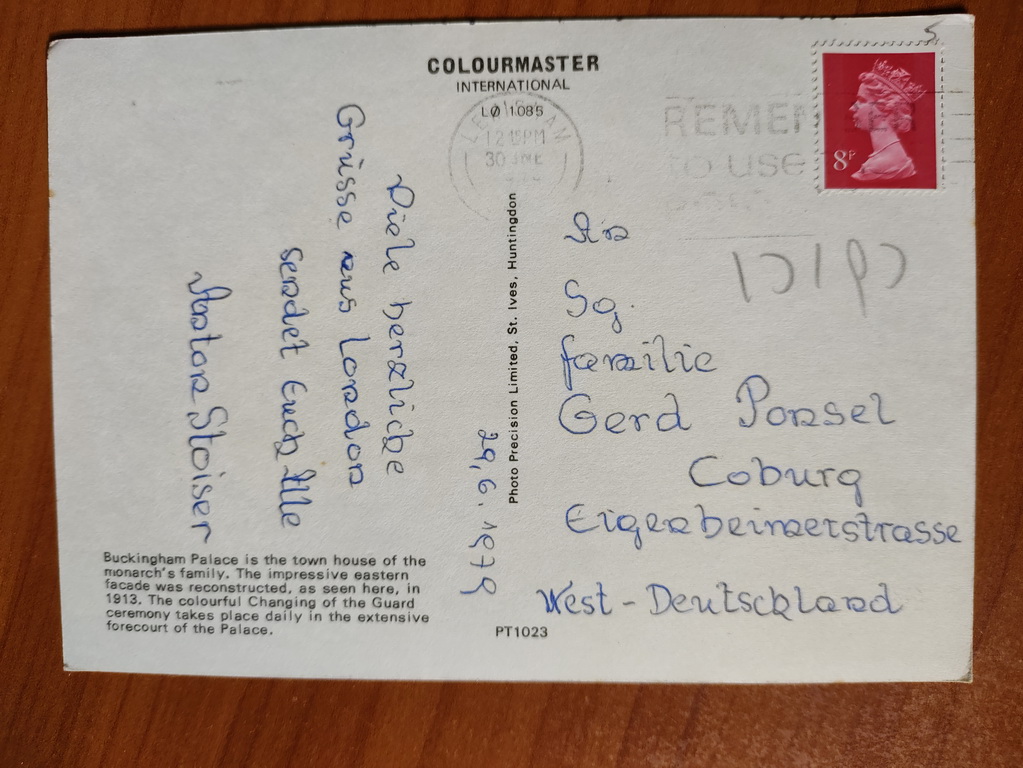 COLOURMASTER
INTERNATIONAL
LØ 1085
12 15 PM
30 JNE
REMEMBER
to use
8P
Viele herzliche
Grüsse aus London
sendet Euch Alle
Anton Stoiser
29.6.1979
Photo Precision Limited, St. Ives, Huntingdon
An
Sg.
Familie
Gerd Ponsel
Coburg
Eigenheimerstrasse
West-Deutschland
Buckingham Palace is the town house of the
monarch's family. The impressive eastern
facade was reconstructed, as seen here, in
1913. The colourful Changing of the Guard
ceremony takes place daily in the extensive
forecourt of the Palace.
PT1023